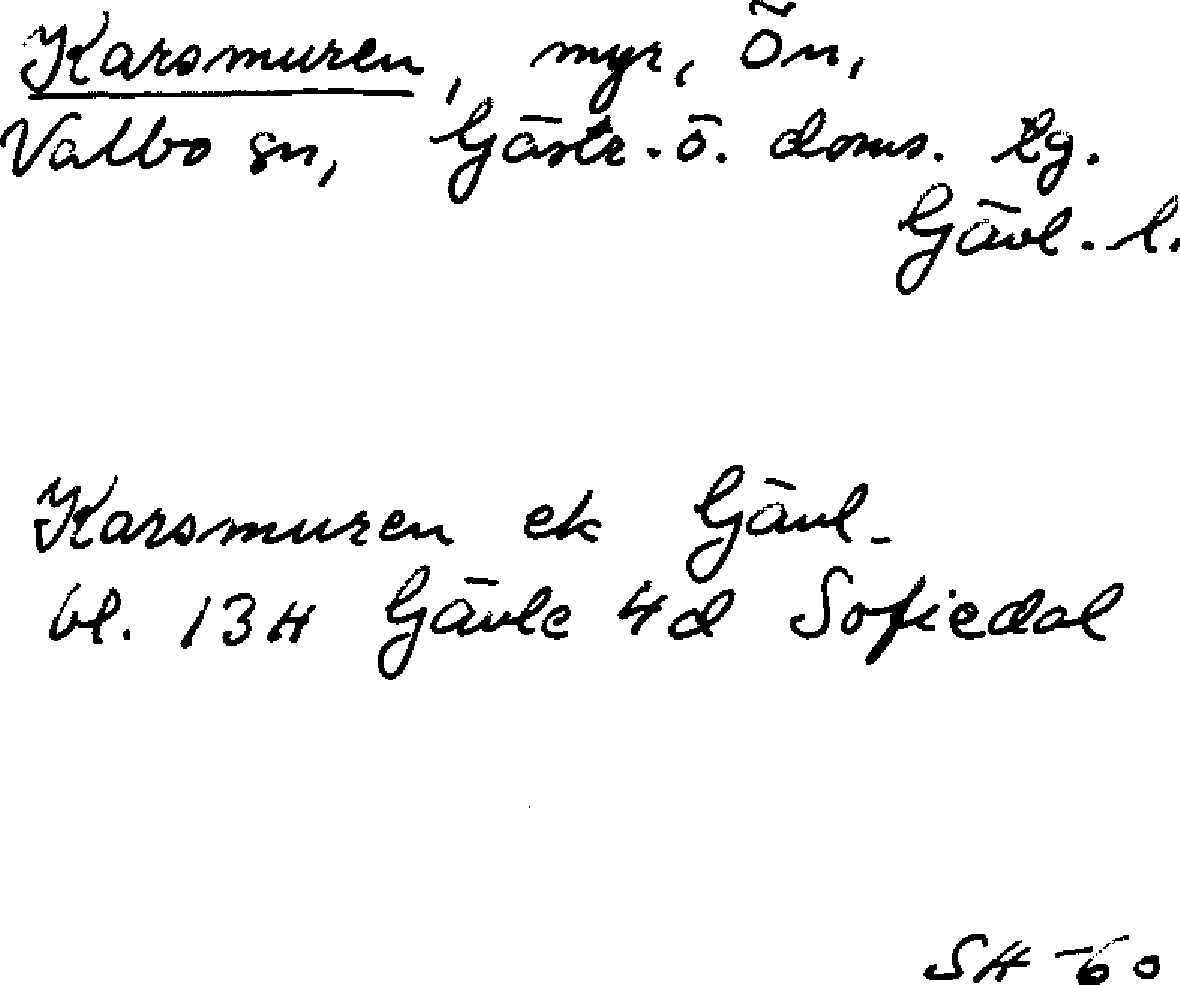 Karsmuren, myr, Ön,
Valbo sn, Gästr. ö. doms. tg.
Gävl. l.
Karsmuren ek Gävl.
bl. 13H Gävle 4d Sofiedal
SH -60